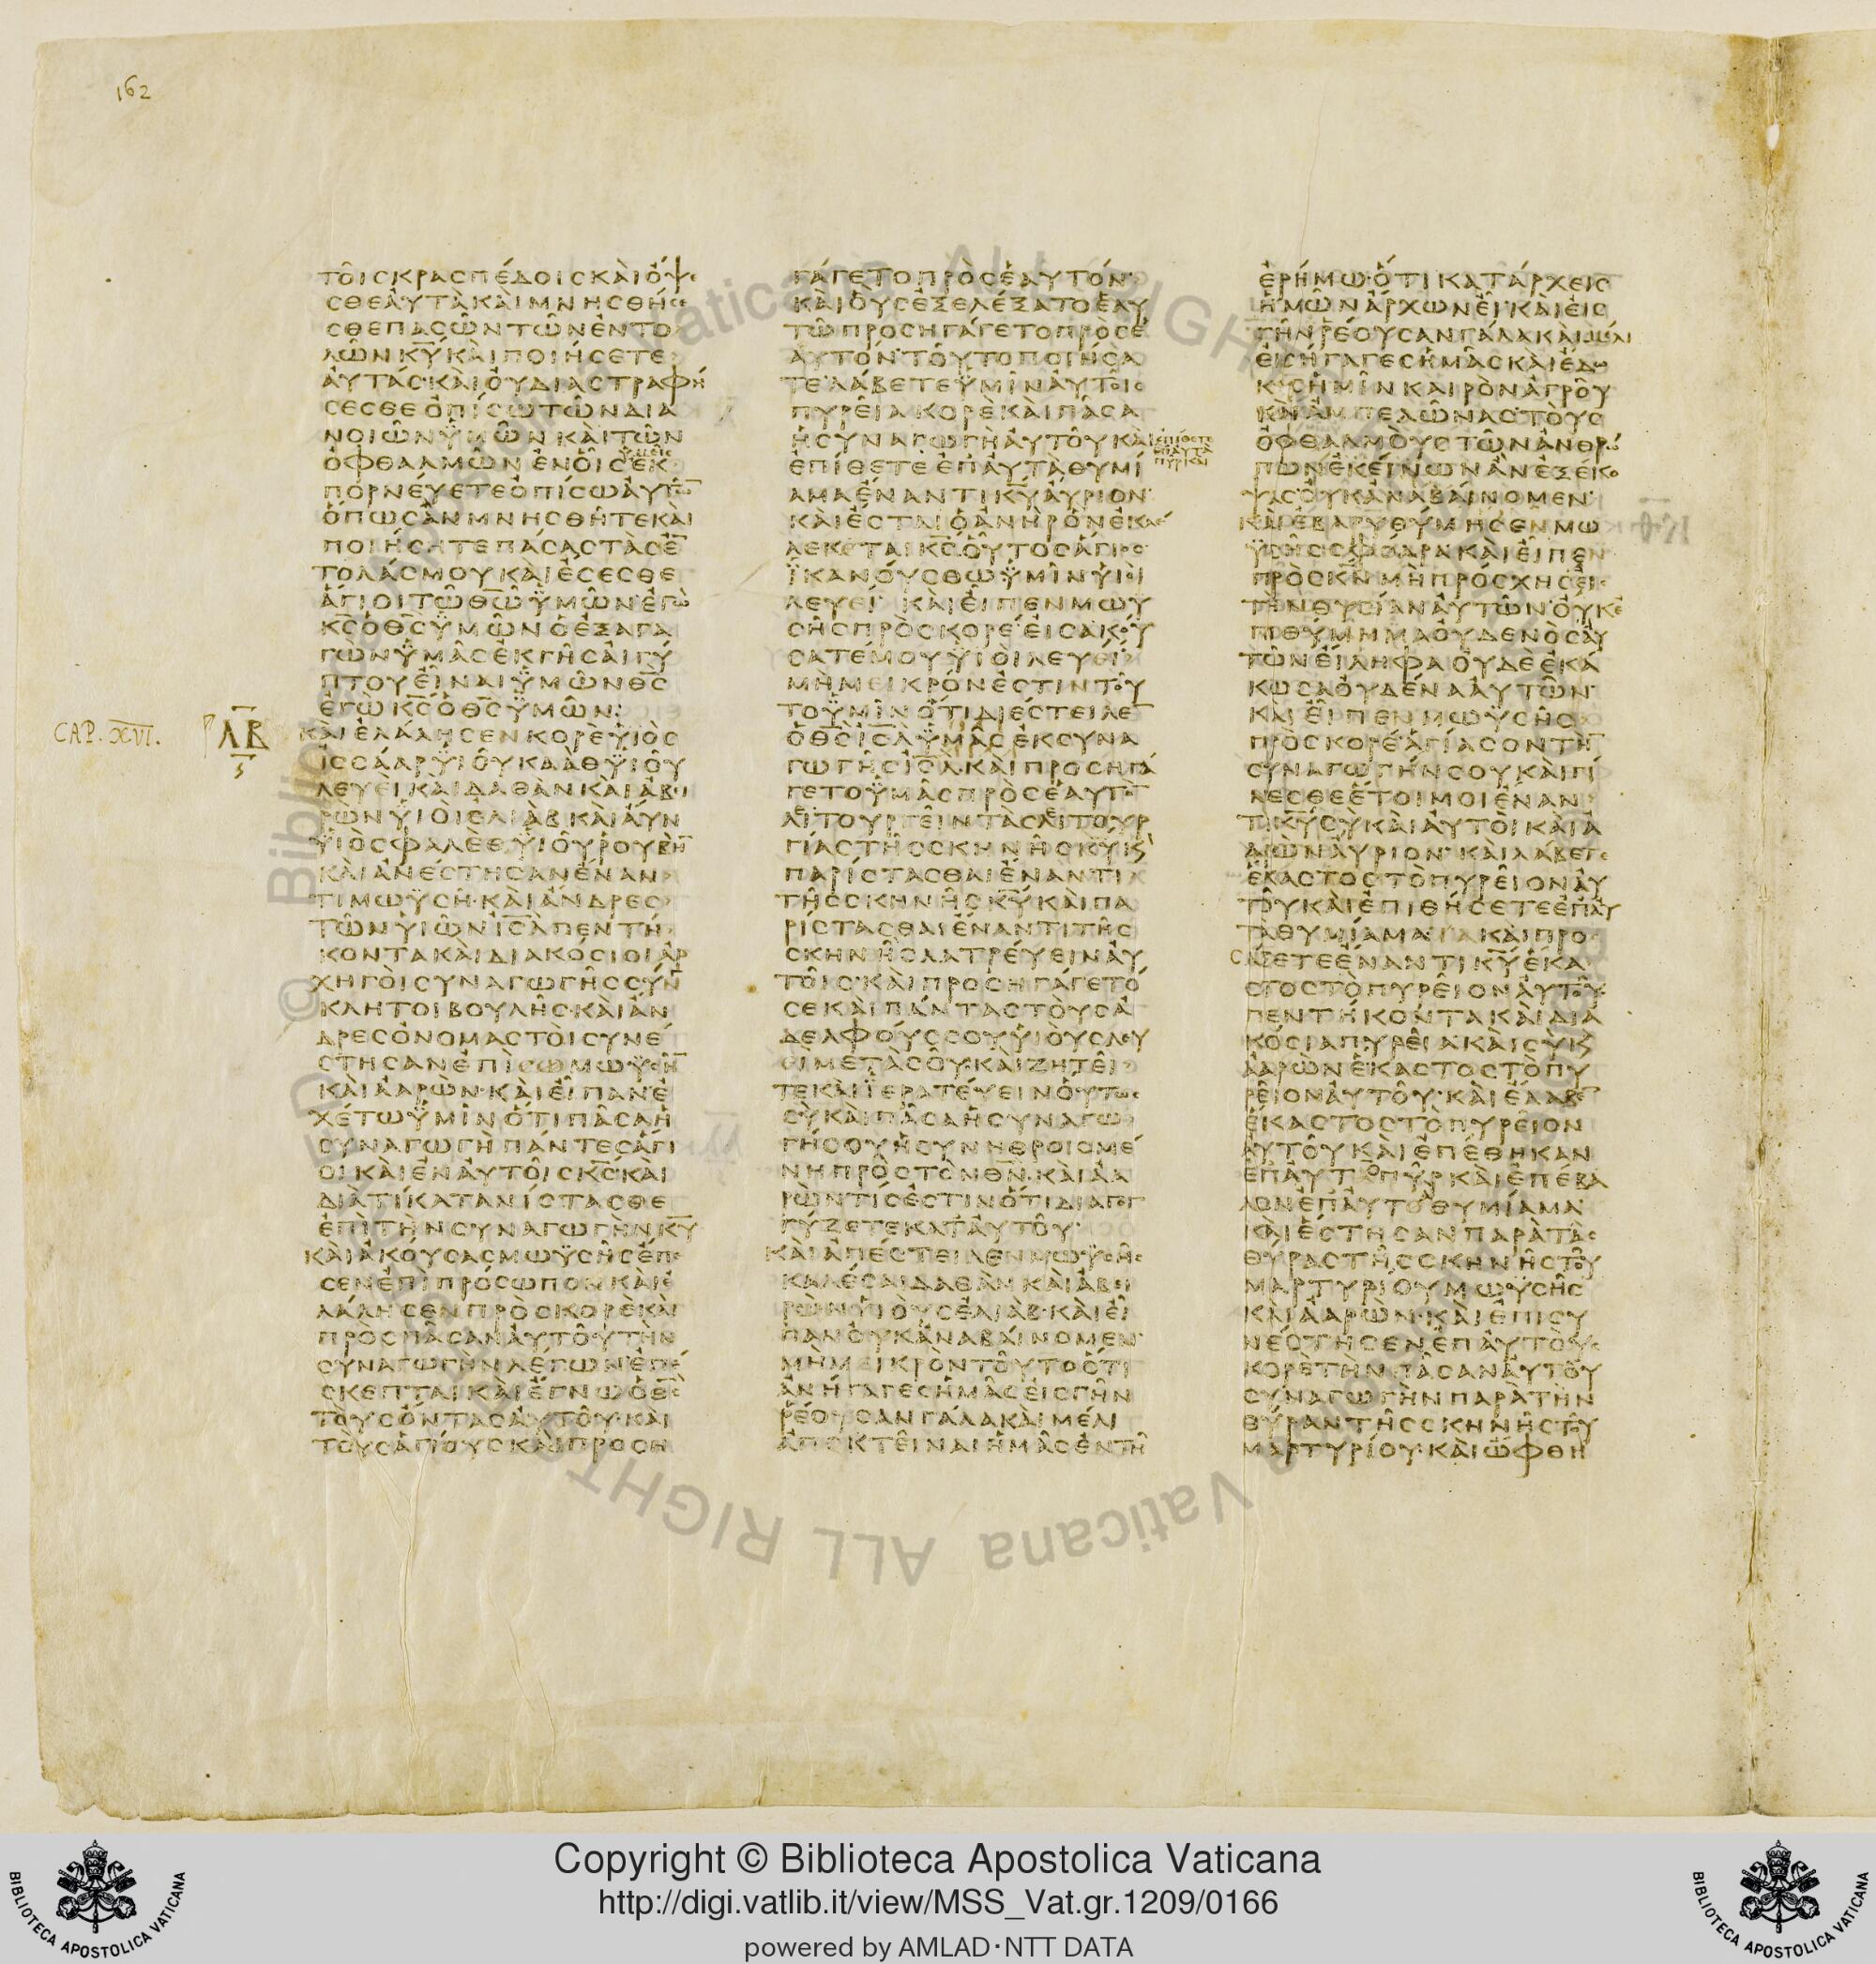 162
τοῖς κρασπέδοις καὶ ὄψε
σθε αὐτὰ καὶ μνησθήσε
σθε πασῶν τῶν ἐντο
λῶν κ̅υ̅ καὶ ποιήσετε
αὐτάς· καὶ οὐ διαστραφή
σεσθε ὀπίσω τῶν δια
νοιῶν ὑμῶν καὶ τῶν
ὀφθαλμῶν ἐν οἷς ἐκ
πορνεύετε ὀπίσω αὐτῶ̅
ὅπως ἂν μνησθῆτε καὶ
ποιήσητε πάσας τὰς ἐ̅
τολάς μου καὶ ἔσεσθε
ἅγιοι τῶ θ̅ω̅ ὑμῶν· ἐγὼ
κ̅ς̅ ὁ θ̅ς̅ ὑμῶν ὁ ἐξαγα
γὼν ὑμᾶς ἐκ γῆς αἰγύ
πτου εἶναι ὑμῶν θ̅ς̅
ἐγὼ κ̅ς̅ ὁ θ̅ς̅ ὑμῶν:
CAP. XVI.
Λ̅Β̅
καὶ ἐλάλησεν κορὲ υἱὸς
ἰσσάαρ υἱοῦ κααθ υἱοῦ
λευεὶ καὶ δαθὰν καὶ ἀβει
ρὼν υἱοὶ ἐλιὰβ καὶ αὒν
υἱὸς φαλὲθ υἱοῦ ῥουβὴ̅
καὶ ἀνέστησαν ἔναν
τι μωϋσῆ· καὶ ἄνδρες
τῶν υἱῶν ι̅σ̅λ̅ πεντή
κοντα καὶ διακόσιοι ἀρ
χηγοὶ συναγωγῆς σύν
κλητοι βουλῆς· καὶ ἄν
δρες ὀνομαστοὶ συνέ
στησαν ἐπὶ μωϋσῆ̅
καὶ ἀαρών· καὶ εἶπαν ἐ
χέτω ὑμῖν ὅτι πᾶσα ἡ
συναγωγὴ πάντες ἅγι
οι καὶ ἐν αὐτοῖς κ̅ς̅· καὶ
διὰ τί κατανίστασθε
ἐπὶ τὴν συναγωγὴν κ̅υ̅
καὶ ἀκούσας μωϋσῆς ἔπε
σεν ἐπὶ πρόσωπον καὶ ἐ
λάλησεν πρὸς κορὲ καὶ
πρὸς πᾶσαν αὐτοῦ τὴν
συναγωγὴν λέγων· ἐπέ
σκεπται καὶ ἔγνω ὁ θ̅ς̅
τοὺς ὄντας αὐτοῦ· καὶ
τοὺς ἁγίους καὶ προση
γάγετο πρὸς ἑαυτόν·
καὶ οὓς ἐξελέξατο ἑαυ
τῶ προσηγάγετο πρὸς ἑ
αυτόν· τοῦτο ποιήσα
τε· λάβετε ὑμῖν αὐτοῖς
πυρεῖα κορὲ καὶ πᾶσα
ἡ συναγωγὴ αὐτοῦ καὶ
ἐπίθετε ἐπ αὐτὰ
πῦρ καὶ
ἐπίθετε ἐπ αὐτὰ θυμί
αμα ἔναντι κ̅υ̅ αὔριον·
καὶ ἔσται ὁ ἀνὴρ ὃν ἐκλέ
λεκται κ̅ς̅ οὗτος ἅγιος
ἱκανούσθω ὑμῖν υἱοὶ
λευεί· καὶ εἶπεν μωυ
σῆς πρὸς κορέ· εἰσακού
σατέ μου υἱοὶ λευεί
μὴ μεικρόν ἐστιν τοῦ
το ὑμῖν ὅτι διέστειλε̅
ὁ θ̅ς̅ ι̅σ̅λ̅ ὑμᾶς ἐκ συνα
γωγῆς ι̅σ̅λ̅· καὶ προσηγά
γετο ὑμᾶς πρὸς ἑαυτὸ̅
λιτουργεῖν τὰς λιτουρ
γίας τῆς σκηνῆς κ̅υ̅ κ̀
παρίστασθαι ἔναντι
τῆς σκηνῆς κ̅υ̅ καὶ πα
ρίστασθαι ἔναντι τῆς
σκηνῆς λατρεύειν αὐ
τοῖς· καὶ προσηγάγετό
σε καὶ πάντας τοὺς ἀ
δελφούς σου υἱοὺς λευ
εὶ μετὰ σοῦ· καὶ ζητεῖ
τε καὶ ἱερατεύειν οὕτως
σὺ καὶ πᾶσα ἡ συναγω
γή σου ἡ συνηθροισμέ
νη πρὸς τὸν θ̅ν̅· καὶ ἀα
ρὼν τίς ἐστιν ὅτι διαγογ
γύζετε κατ αὐτοῦ·
καὶ ἀπέστειλεν μωϋσῆς
καλέσαι δαθὰν καὶ ἀβει
ρὼν υἱοὺς ἐλιάβ· καὶ εἶ
παν οὐκ ἀναβαίνομεν·
μὴ μεικρὸν τοῦτο ὅτι
ἀνήγαγες ἡμᾶς εἰς γῆν
ῥέουσαν γάλα καὶ μέλι
ἀποκτεῖναι ἡμᾶς ἐν τῆ
ἐρήμω· ὅτι κατάρχεις
ἡμῶν ἄρχων εἶ· καὶ εἰς
γῆν ῥέουσαν γάλα καὶ μέλι
εἰσήγαγες ἡμᾶς καὶ ἔδω
κας ἡμῖν κλῆρον ἀγροῦ
καὶ ἀμπελῶνας· τοὺς
ὀφθαλμοὺς τῶν ἀνθρώ
πων ἐκείνων ἂν ἐξέκο
ψας· οὐκ ἀναβαίνομεν·
καὶ ἐβαρυθύμησεν μω
ϋσῆς σφόδρα καὶ εἶπεν
πρὸς κ̅ν̅ μὴ πρόσχης εἰς
τὴν θυσίαν αὐτῶν· οὐκ ἐ
πιθύμημα οὐδενὸς αὐ
τῶν εἴληφα οὐδὲ ἐκά
κωσα οὐδένα αὐτῶν·
καὶ εἶπεν μωϋσῆς
πρὸς κορέ· ἁγίασον τὴ̅
συναγωγήν σου καὶ γί
νεσθε ἕτοιμοι ἔναν
τι κ̅υ̅ σὺ καὶ αὐτοὶ καὶ ἀ
αρὼν αὔριον· καὶ λάβετε
ἕκαστος τὸ πυρεῖον αὐ
τοῦ καὶ ἐπιθήσετε ἐπ αὐ
τὰ θυμίαμα καὶ προ
σάξετε ἔναντι κ̅υ̅ ἕκα
στος τὸ πυρεῖον αὐτοῦ·
πεντήκοντα καὶ δια
κόσια πυρεῖα καὶ σὺ κ̀
ἀαρὼν ἕκαστος τὸ πυ
ρεῖον αὐτοῦ· καὶ ἔλαβε̅
ἕκαστος τὸ πυρεῖον
αὐτοῦ καὶ ἐπέθηκαν
ἐπ αὐτὸ πῦρ καὶ ἐπέβα
λον ἐπ αὐτὸ θυμίαμα
καὶ ἔστησαν παρὰ τὰς
θύρας τῆς σκηνῆς τοῦ
μαρτυρίου μωϋσῆς
καὶ ἀαρών· καὶ ἐπισυ
νέστησεν ἐπ αὐτοὺς
κορὲ τὴν πᾶσαν αὐτοῦ
συναγωγὴν παρὰ τὴν
θύραν τῆς σκηνῆς τοῦ
μαρτυρίου· καὶ ὤφθη
Copyright © Biblioteca Apostolica Vaticana
http://digi.vatlib.it/view/MSS_Vat.gr.1209/0166
powered by AMLAD·NTT DATA
BIBLIOTECA APOSTOLICA VATICANA
BIBLIOTECA APOSTOLICA VATICANA